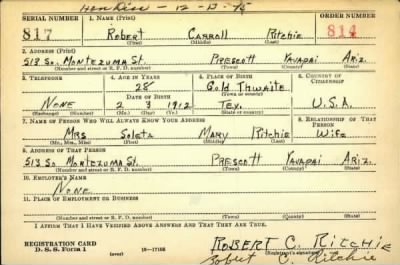 12-13-45
SERIAL NUMBER 1. NAME (Print) ORDER NUMBER
817 Robert Carroll Ritchie 814
(First) (Middle) (Last)
2. ADDRESS (Print)
513 So. Montezuma St. Prescott Yavapai Ariz.
(Number and street or R. F. D. number) (Town) (County) (State)
3. TELEPHONE 4. AGE IN YEARS 5. PLACE OF BIRTH 6. COUNTRY OF CITIZENSHIP
28 Gold Thwaite
DATE OF BIRTH (Town or county)
None 2 3 1912 Tex. U.S.A.
(Exchange) (Number) (Mo.) (Day) (Yr.) (State or country)
7. NAME OF PERSON WHO WILL ALWAYS KNOW YOUR ADDRESS 8. RELATIONSHIP OF THAT PERSON
Mrs Mary Ritchie Wife
(Mr., Mrs., Miss) (First) (Middle) (Last)
9. ADDRESS OF THAT PERSON
513 So. Montezuma St. Prescott Yavapai Ariz.
(Number and street or R. F. D. number) (Town) (County) (State)
10. EMPLOYER'S NAME
None
11. PLACE OF EMPLOYMENT OR BUSINESS
(Number and street or R. F. D. number) (Town) (County) (State)
I AFFIRM THAT I HAVE VERIFIED ABOVE ANSWERS AND THAT THEY ARE TRUE.
REGISTRATION CARD
D. S. S. Form 1 (over) 16-17105
ROBERT C. RITCHIE
(Registrant's signature)
Robert C. Ritchie